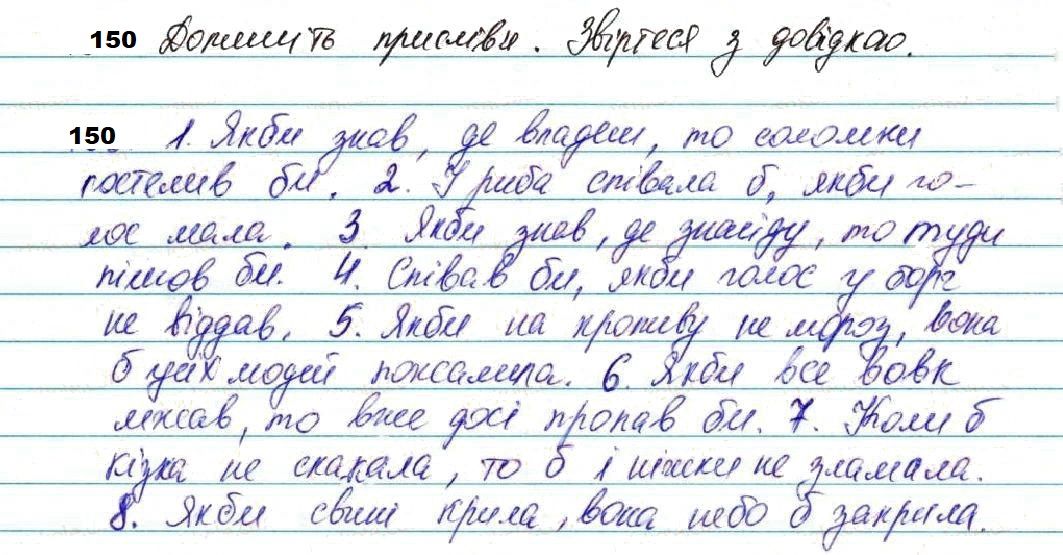 150 Допишіть прислівя. Звіртеся з довідкою.
150 1. Якби знав, де впадеш, то соломки
постелив би. 2. І риба співала б, якби го-
лос мала. 3. Якби знав, де знайду, то туди
пішов би. 4. Співав би, якби голос у борг
не віддав. 5. Якби на кропиву не мороз, вона
б усіх людей пожалила. 6. Якби все вовк
лежав, то вже досі пропав би. 7. Коли б
кізка не скакала, то б і ніжки не зламала.
8. Якби свині крила, вона небо б закрила.